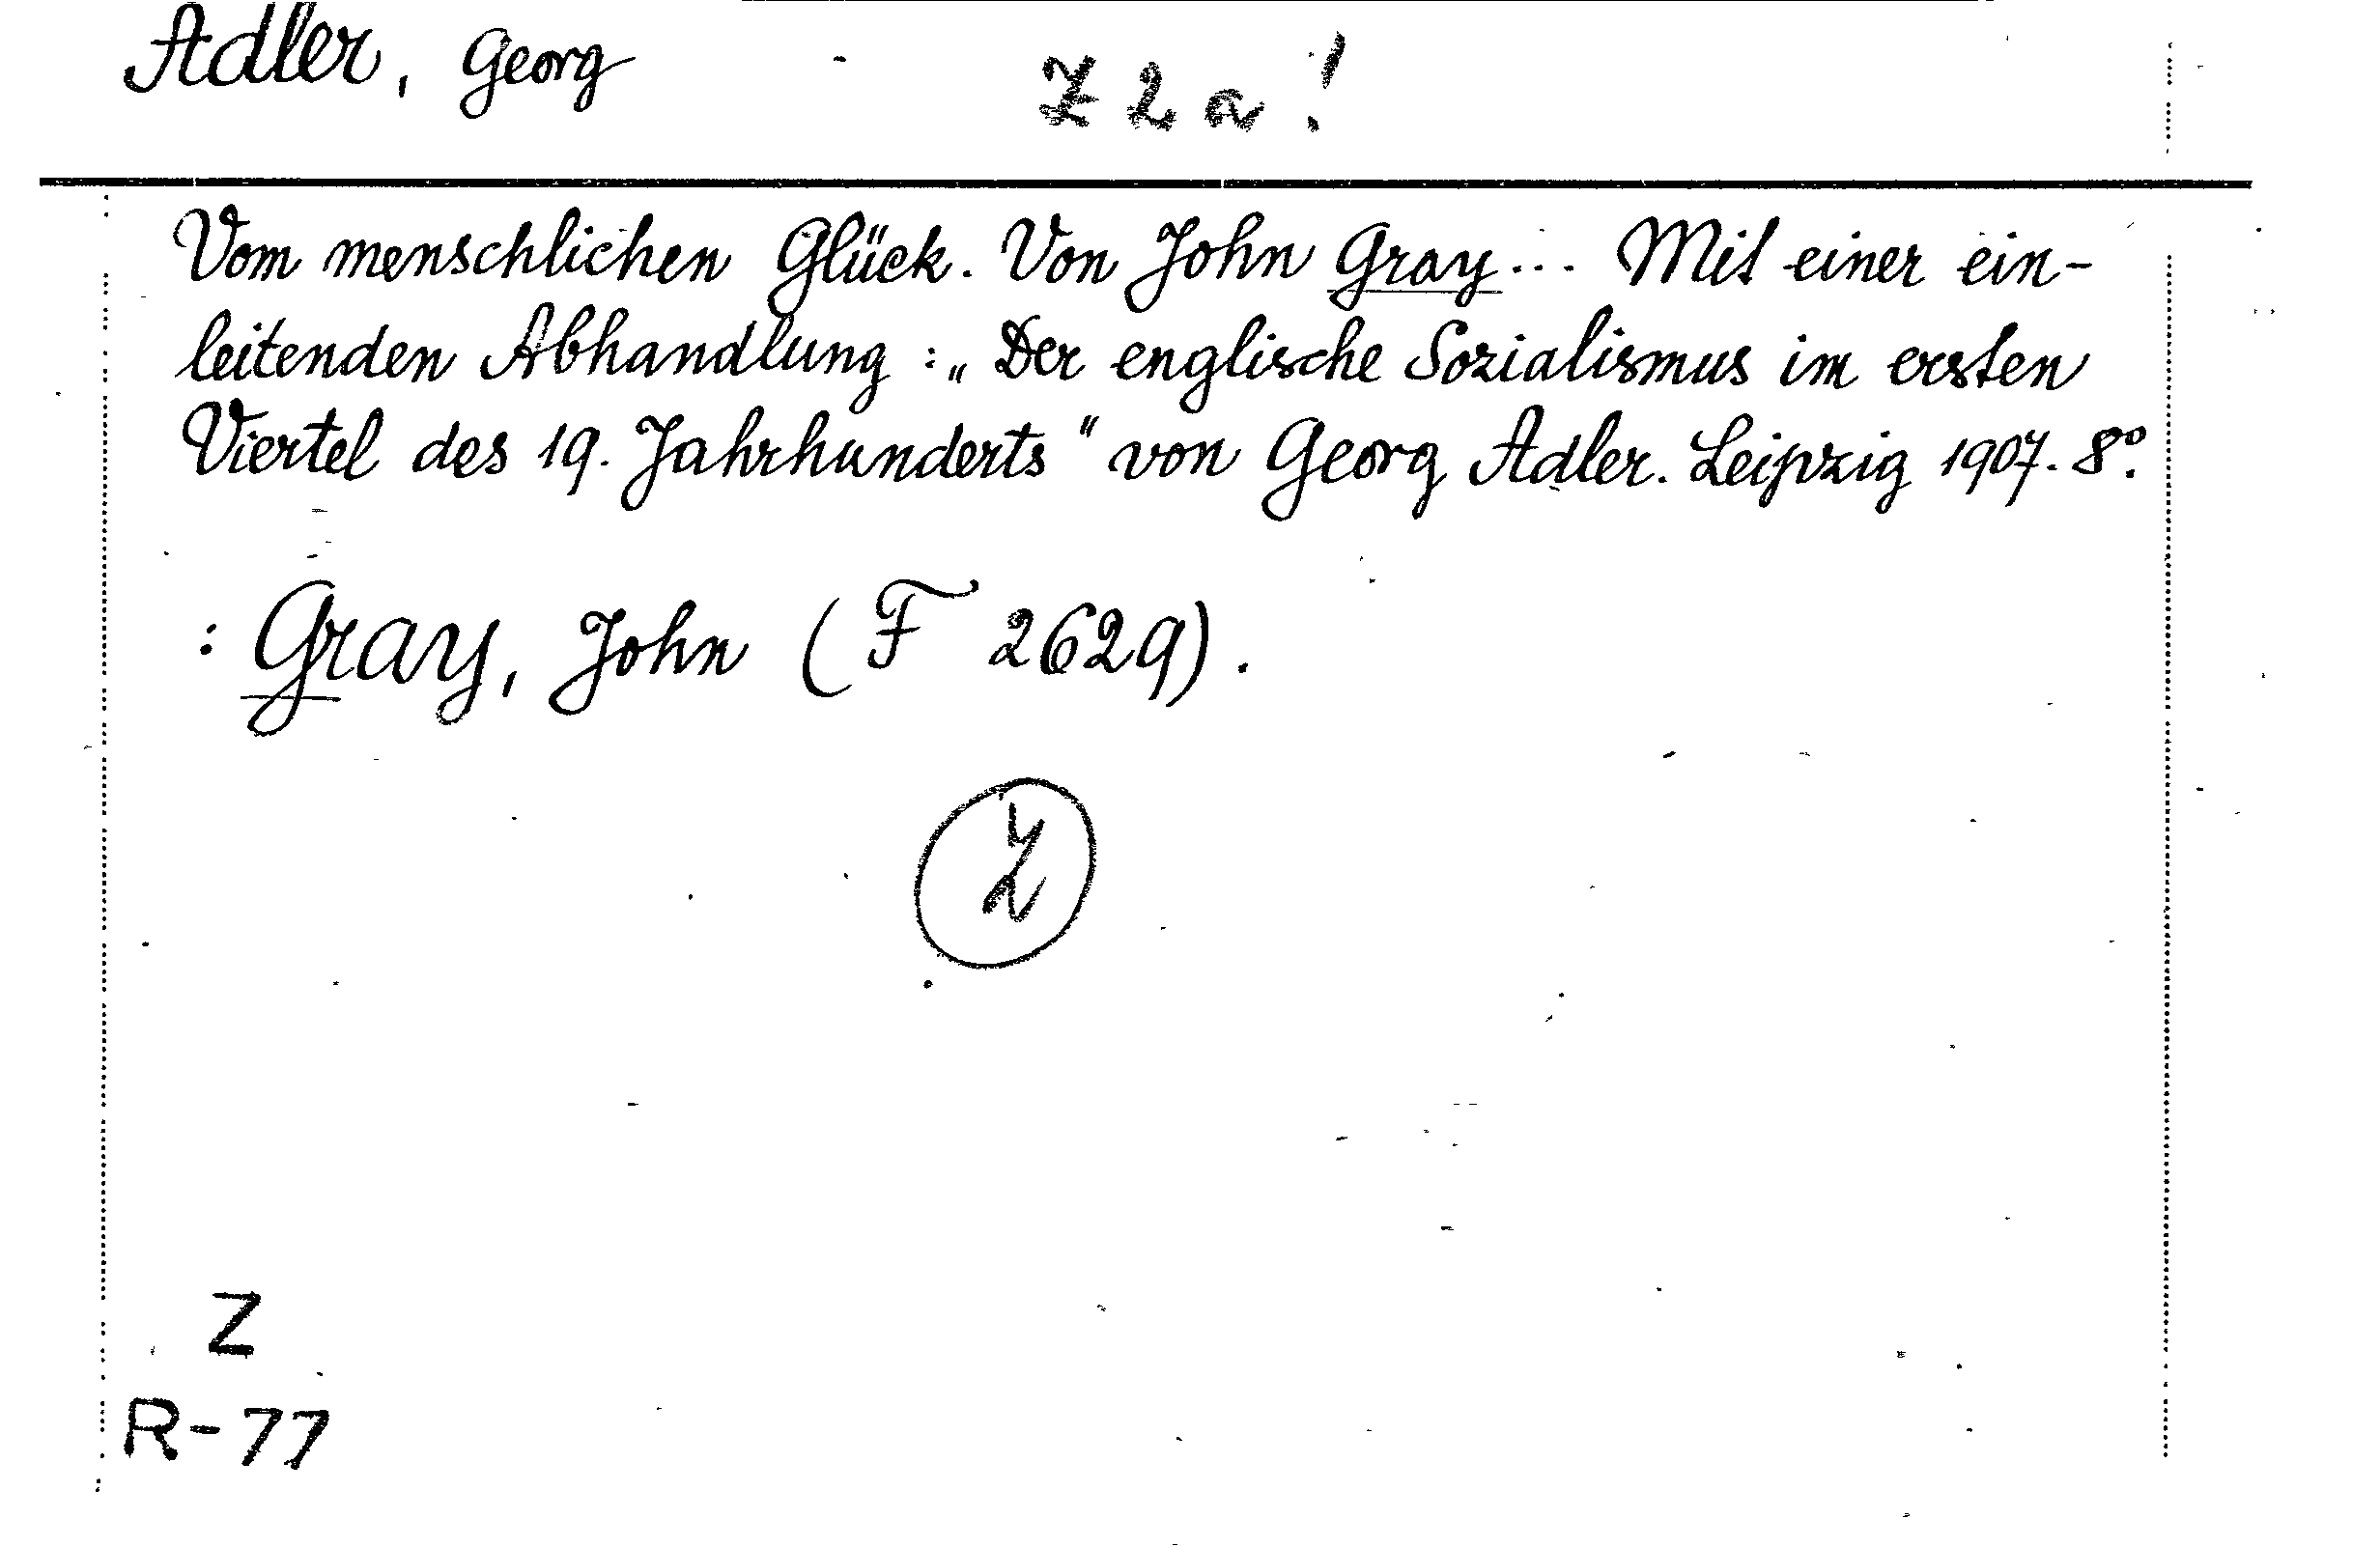 Adler, Georg
Z 2 a !
Vom menschlichen Glück. Von John Gray... Mit einer ein-
leitenden Abhandlung : „Der englische Sozialismus im ersten
Viertel des 19. Jahrhunderts" von Georg Adler. Leipzig 1907. 8°.
: Gray, John (F 2629).
Z
R-77